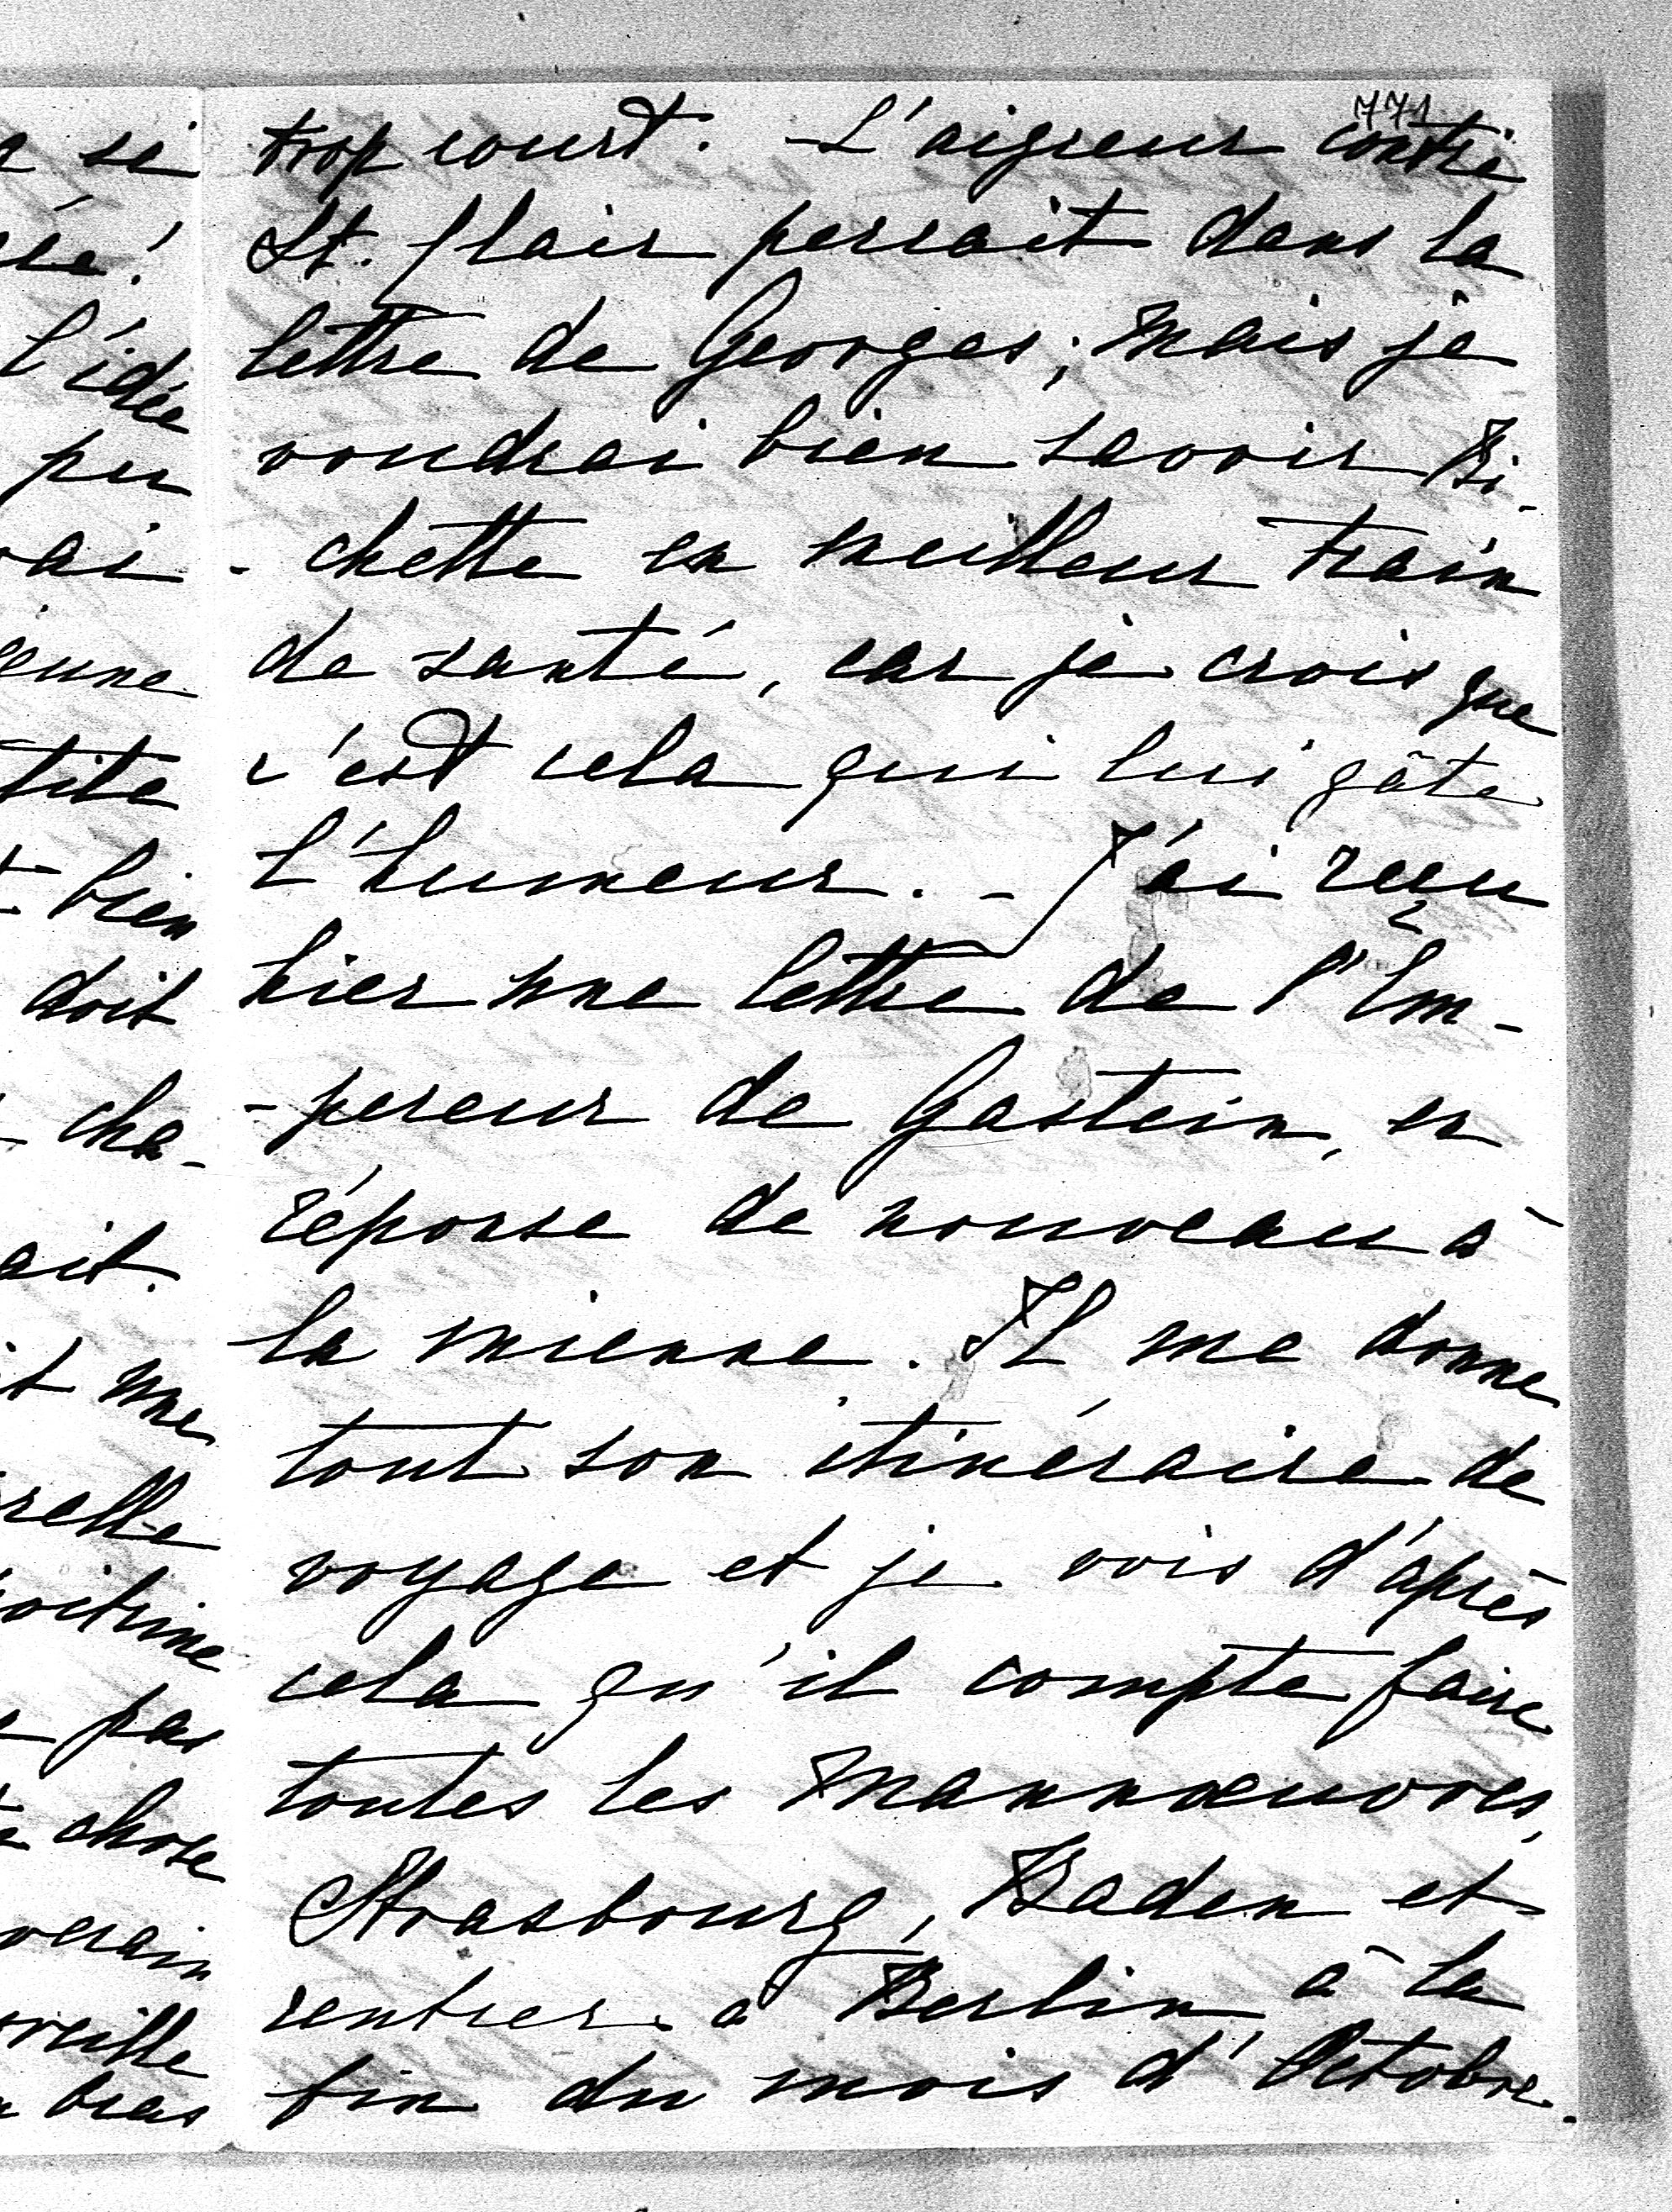 771
trop court. - L'aigreur contre
St. flair perçait dans la
lettre de Georges; mais je
voudrai bien savoir Bi-
-chette en meilleur train
de santé, car je crois que
c'est cela qui lui gâte
l'humeur. - J'ai reçu
hier une lettre de l'Em-
-pereur de Gastein, en
réponse de nouveau à
la mienne. Il me donne
tout son itinéraire de
voyage et je vois d'après
cela qu'il compte faire
toutes les mannoeuvres,
Strasbourg, Baden et
rentrer à Berlin à la
fin du mois d'Octobre.
si
l'idée
pu
ai
tite
bien
doit
cha-
ait.
une
pas
chose
bras